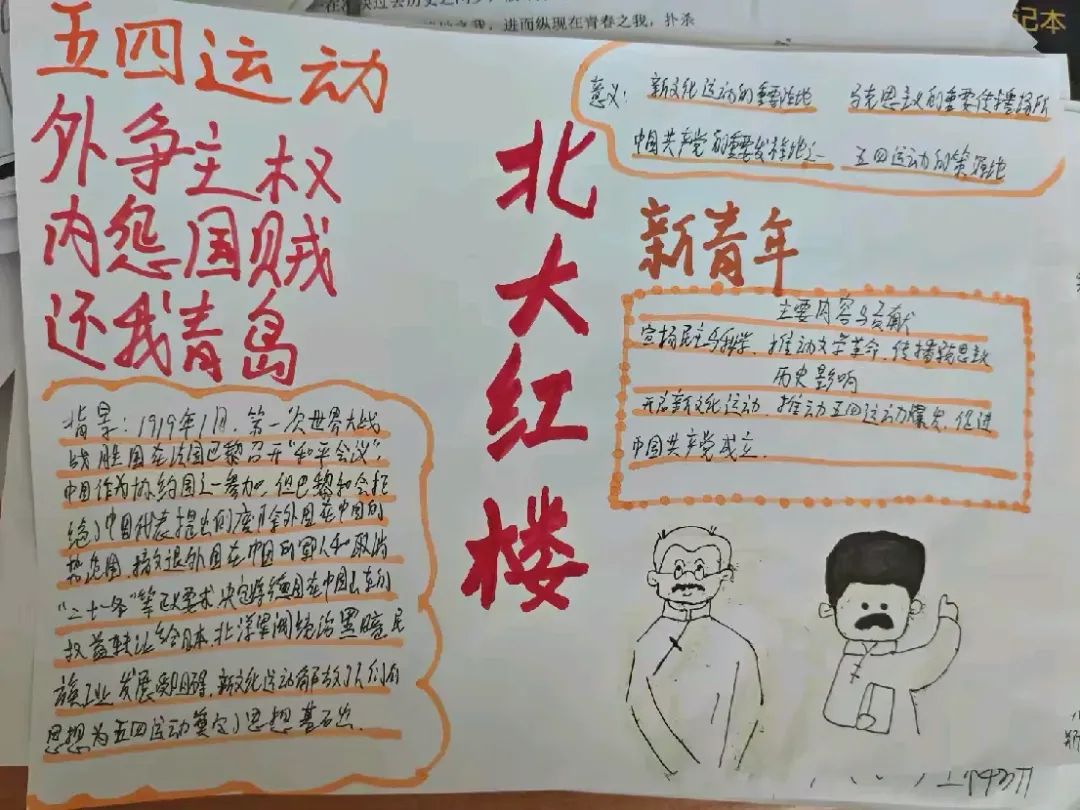 五四运动
外争主权
内惩国贼
还我青岛
背景：1919年1月，第一次世界大战
战胜国在法国巴黎召开“和平会议”，
中国作为协约国之一参加，但巴黎和会拒
绝了中国代表提出的废除外国在中国的
势力范围、撤退外国在中国的军队和取消
“二十一条”等正义要求，决定将德国在中国山东的
权益转让给日本，北洋军阀统治黑暗，民
族工业发展受阻碍，新文化运动解放了人们的
思想为五四运动奠定了思想基础
北大红楼
意义：新文化运动的重要阵地 马克思主义的重要传播场所
中国共产党的重要发祥地之一 五四运动的策源地
新青年
主要内容与贡献
宣扬民主与科学，推动文学革命，传播新思想
历史影响
开启新文化运动，推动五四运动爆发，促进
中国共产党成立.
进而纵现在青春之我，扑杀
记本